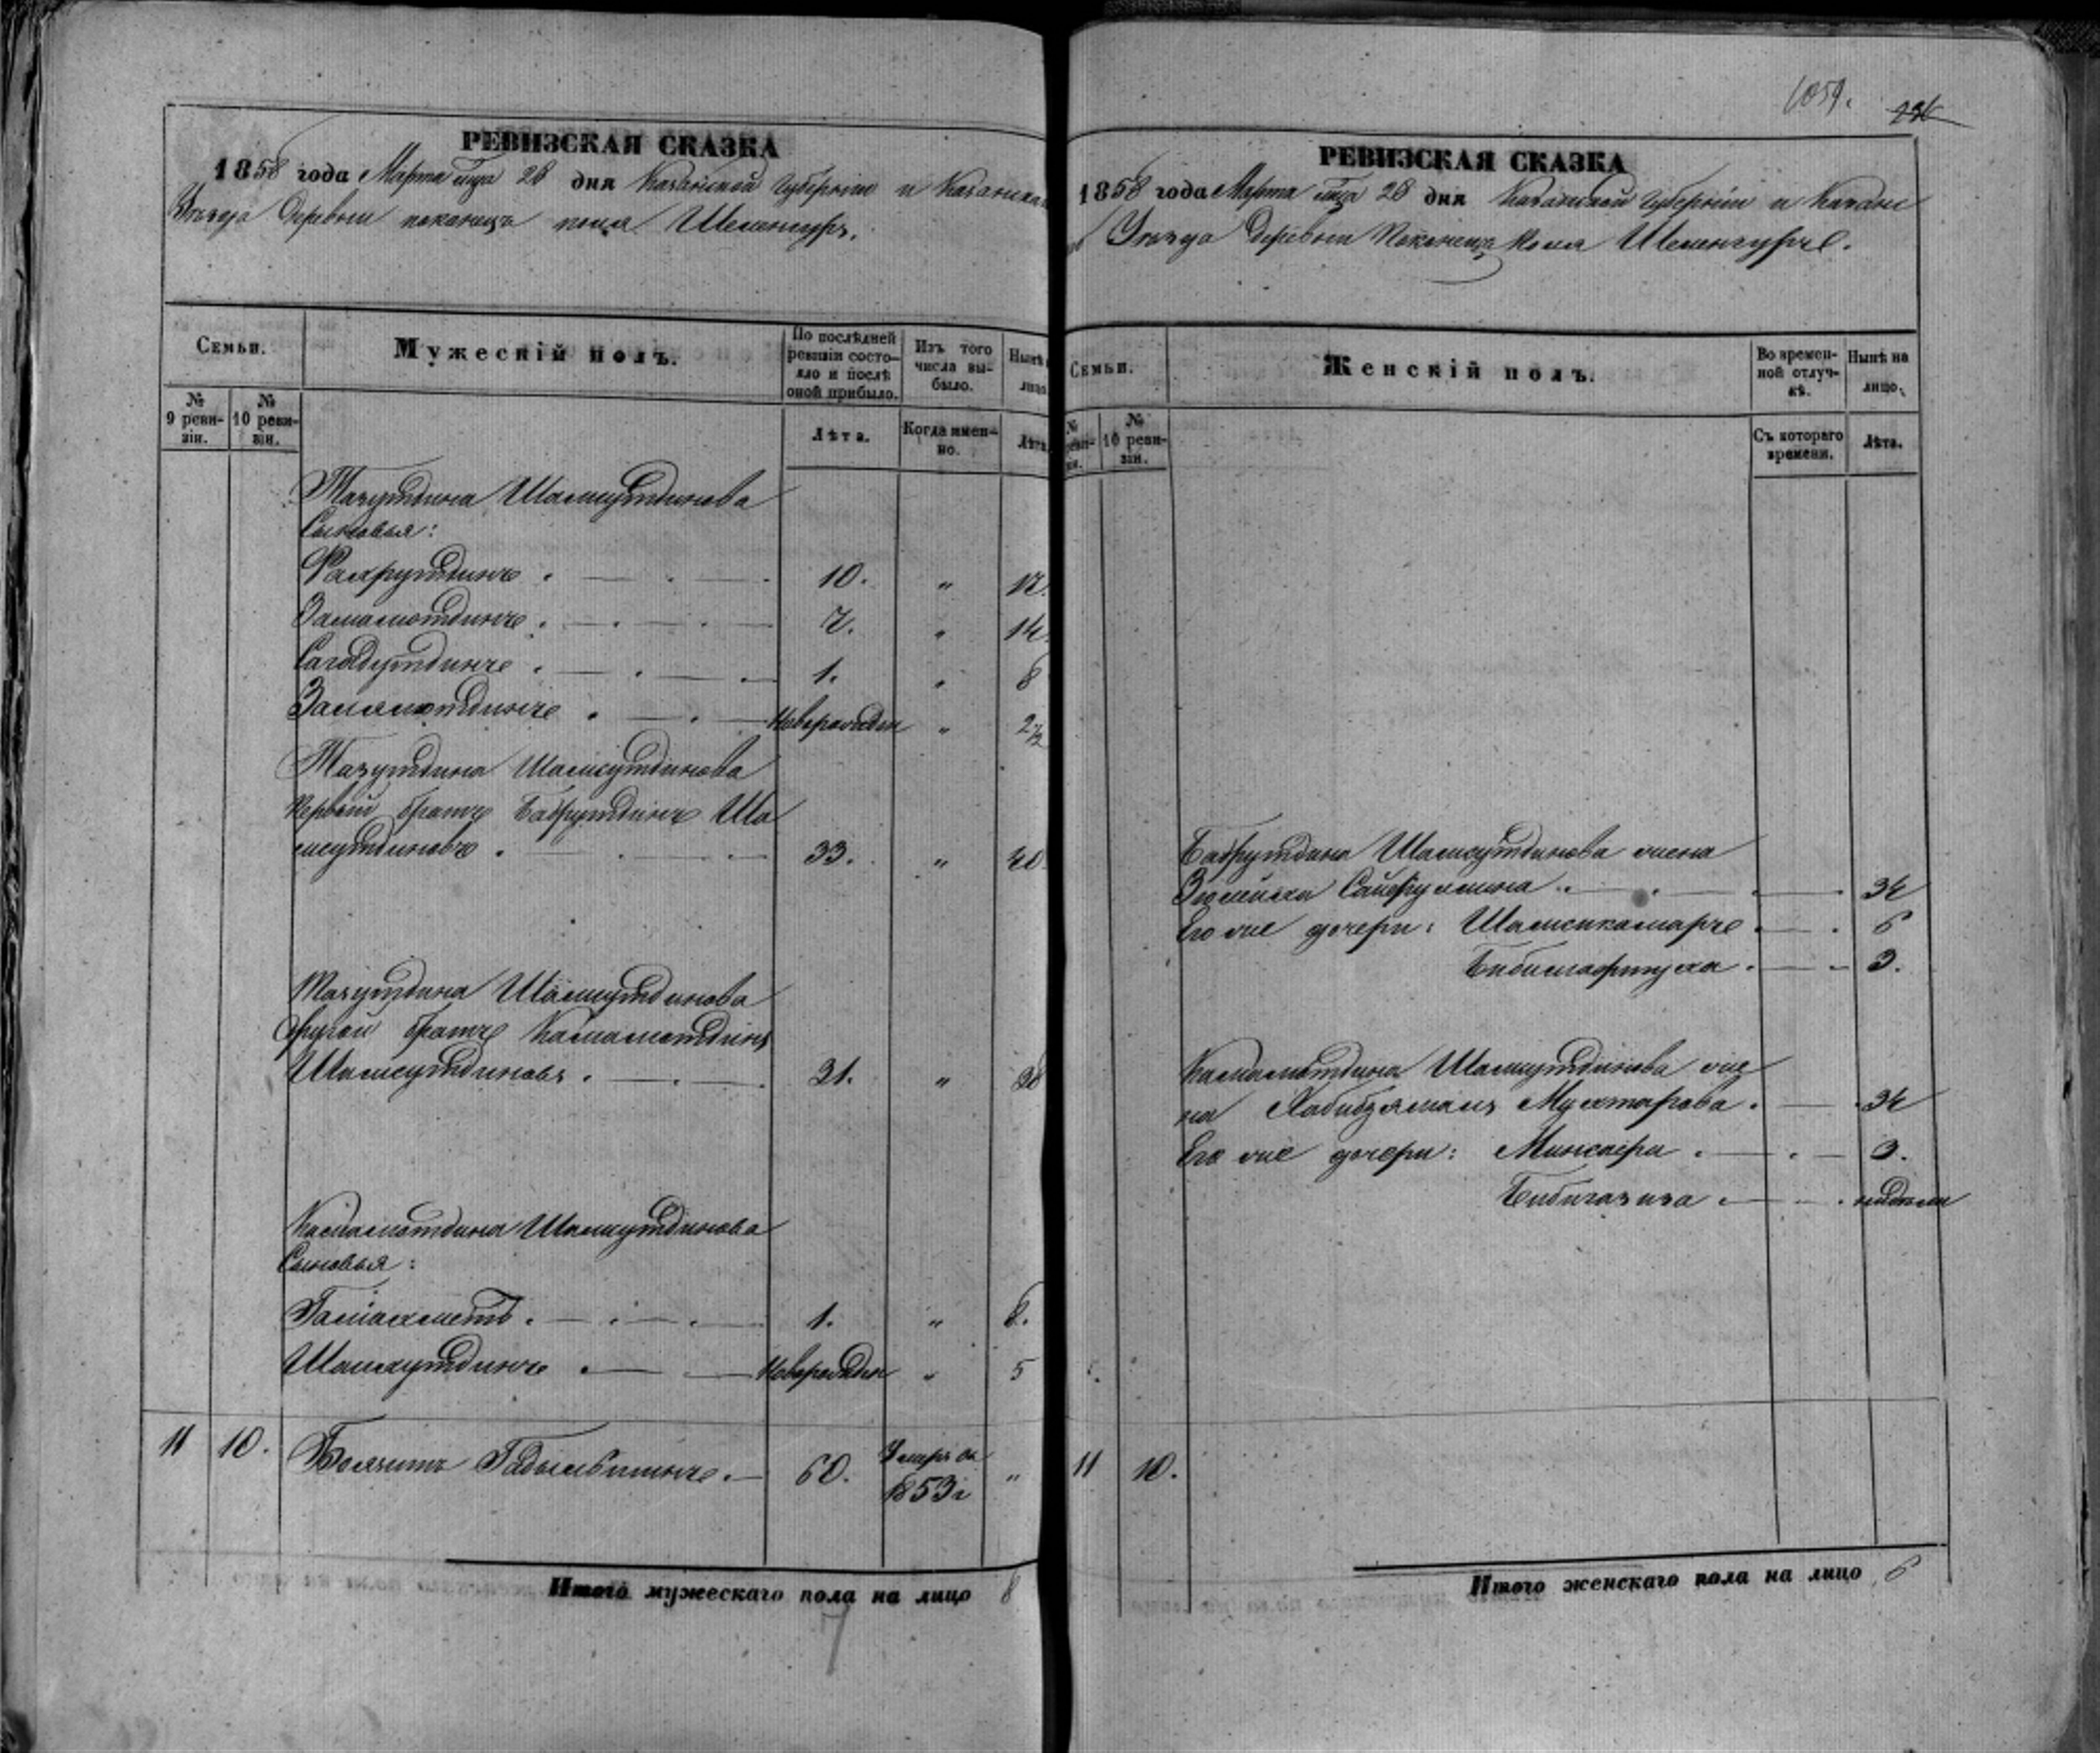 РЕВИЗСКАЯ СКАЗКА
1858 года Марта м̃ца 28 дня Казанской Губернии и Казанска
Уезда Деревни поконецъ поля Шеменгуръ.
Семьи.
Мужескій полъ.
По послѣдней ревизіи состояло и послѣ оной прибыло.
Изъ того числа выбыло.
Нынѣ лицо
№ 9 ревизіи.
№ 10 ревизіи.
Лѣта.
Когда именно.
Лѣта
Тазутдина Шамсутдинова
Сыновья:
Фахрутдинъ 10. „ 17.
Замалютдинъ 7. „ 14.
Сагадутдинъ 1. „ 8
Залялютдинъ Новорожден „ 2½
Тазутдина Шамсутдинова
Первый братъ Бадрутдинъ Ша
мсутдиновъ 33. „ 40.
Тазутдина Шамсутдинова
другой братъ Камалютдинъ
Шамсутдиновъ 31. „ 38
Камалютдина Шамсутдинова
Сыновья:
1. „ 8.
Новорожден „ 5
11 10. 60. Умеръ въ 1853 г „
Итого мужескаго пола на лицо 8
7
1059.
РЕВИЗСКАЯ СКАЗКА
1858 года Марта м̃ца 28 дня Казанской Губерніи и Казанс
Уезда Деревни Поконецъ поля Шеменгуръ.
Семьи.
Женскій полъ.
Во временной отлучкѣ.
Нынѣ на лицо.
№ реви-зіи.
№ 10 ревизіи.
Съ котораго времени.
Лѣта.
Бадрутдина Шамсутдинова жена
Сайфуллина 34
Его же дочери: Шамсикамаръ 6
3.
Камалютдина Шамсутдинова же
на Хабибзямалъ Мухтарова 34
Его же дочери: 3.
Бибигазиза недели
11 10.
Итого женскаго пола на лицо 6